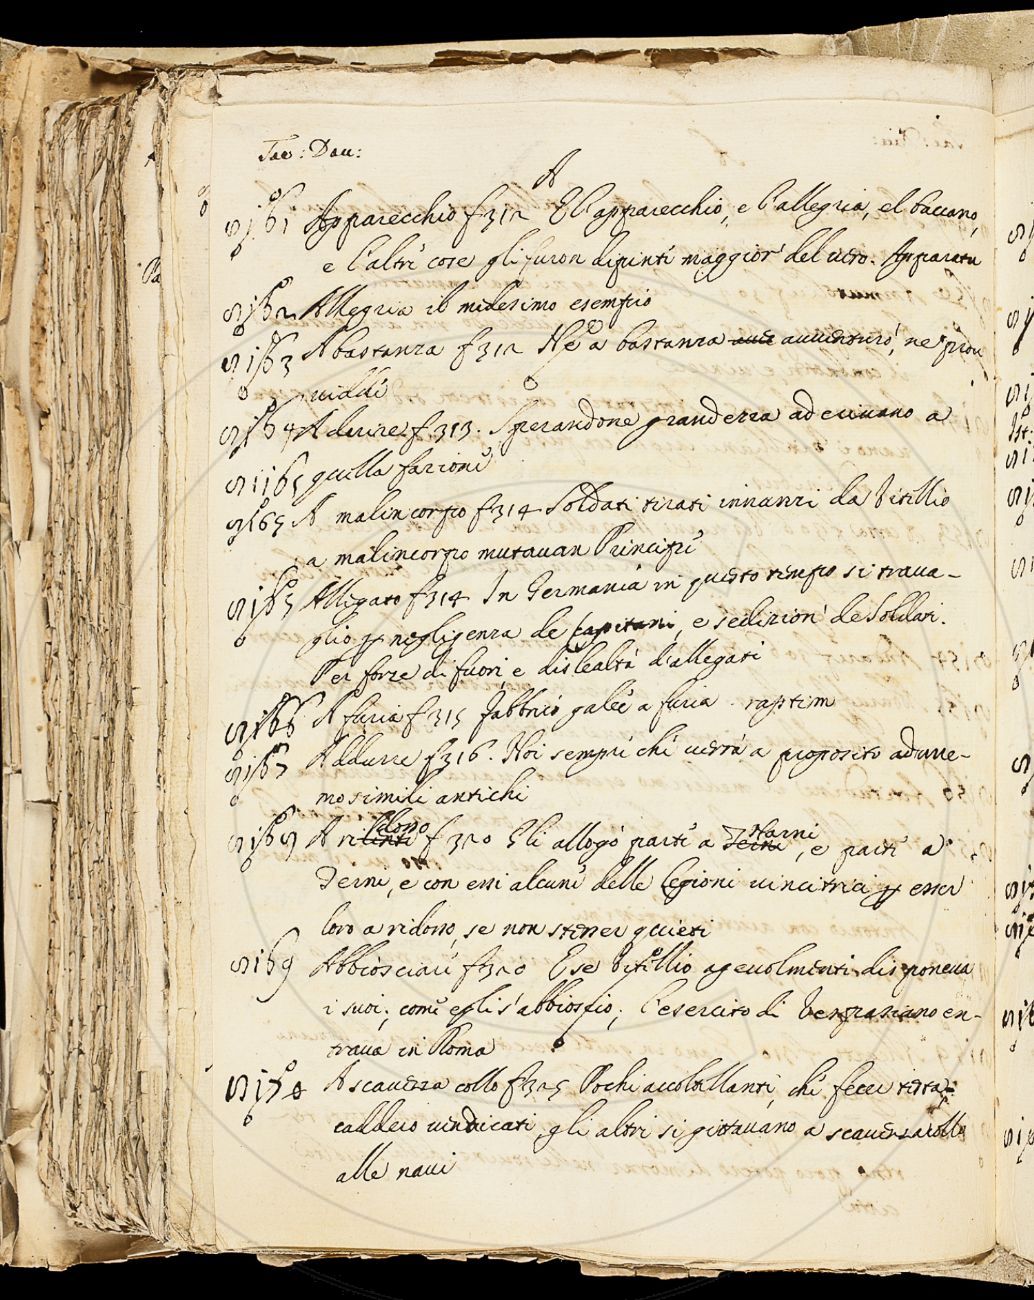 Tac: Dau:
A
S161 Apparecchio f 312 E l'apparecchio, e l'allegria, el baccano,
e l'altre cose gli furon dipinte maggior del vero. Apparatu
S162 Allegria il medesimo esempio
S163 Abastanza f 312 Ne a bastanza auuenturò, ne prou
uidde
S164 Adurre f 313. Sperandone grandezza adeuiuano a
S1165 quella fazione
S165 A malincorpo f 314 Soldati tirati innanzi da Vitellio
a malincorpo mutauan Principe
S165 Allegato f 314 In Germania in questo tempo si traua-
gliò p negligenza de Capitani, e sedizion de Soldati.
Per forze di fuori e dislealtà d'allegati
S166 A furia f 315 fabbricò galee a furia raptim
S167 Addurre f 316. Noi sempre che uerrà a proposito adurre-
mo simili antichi
S168 A ridosso f 320 Gli allogò parte a Narni, e parte a
Terni, e con essi alcune delle legioni uincitrici p esser
loro a ridosso, se non stesser quieti
S169 Abbiosciare f 320 E se Vitellio ageuolmente disponeua
i suoi, come egli s'abbioscio, l'esercito di Vespasiano en-
traua in Roma
S170 A scauezza collo f 325 Pochi accoltellanti, che fecer testa,
caddero uindicati, gli altri si gittauano a scauezzacollo
alle naui